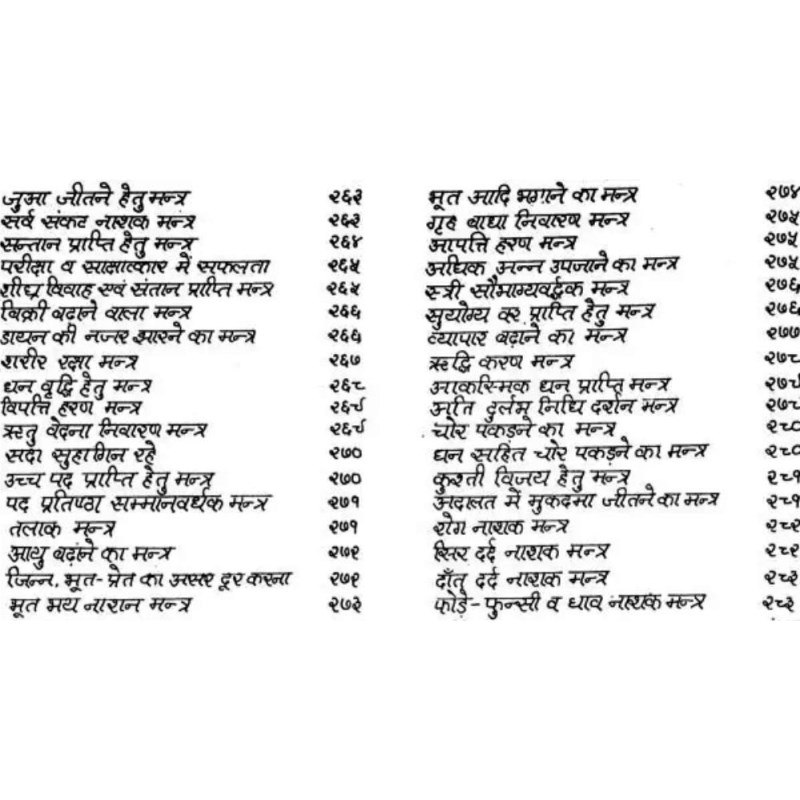 जुआ जीतने हेतु मन्त्र २६३
सर्व संकट नाशक मन्त्र २६३
सन्तान प्राप्ति हेतु मन्त्र २६४
परीक्षा व साक्षात्कार में सफलता २६५
शीघ्र विवाह एवं संतान प्राप्ति मन्त्र २६५
बिक्री बढ़ाने वाला मन्त्र २६६
डायन की नजर झारने का मन्त्र २६६
शरीर रक्षा मन्त्र २६७
धन वृद्धि हेतु मन्त्र २६८
विपत्ति हरण मन्त्र २६९
ऋतु वेदना निवारण मन्त्र २६९
सदा सुहागिन रहे २७०
उच्च पद प्राप्ति हेतु मन्त्र २७०
पद प्रतिष्ठा सम्मानवर्धक मन्त्र २७१
तलाक मन्त्र २७१
आयु बढ़ाने का मन्त्र २७२
जिन्न, भूत-प्रेत का असर दूर करना २७२
भूत भय नाशन मन्त्र २७३
भूत आदि भगाने का मन्त्र २७४
गृह बाधा निवारण मन्त्र २७५
आपत्ति हरण मन्त्र २७५
अधिक अन्न उपजाने का मन्त्र २७५
स्त्री सौभाग्यवर्द्धक मन्त्र २७६
सुयोग्य वर प्राप्ति हेतु मन्त्र २७६
व्यापार बढ़ाने का मन्त्र २७७
ऋद्धि करण मन्त्र २७८
आकस्मिक धन प्राप्ति मन्त्र २७९
अति दुर्लभ निधि दर्शन मन्त्र २७९
चोर पकड़ने का मन्त्र २८०
धन सहित चोर पकड़ने का मन्त्र २८०
कुश्ती विजय हेतु मन्त्र २८१
अदालत में मुकदमा जीतने का मन्त्र २८१
रोग नाशक मन्त्र २८२
सिर दर्द नाशक मन्त्र २८२
दाँत दर्द नाशक मन्त्र २८३
फोड़े-फुन्सी व घाव नाशक मन्त्र २८३